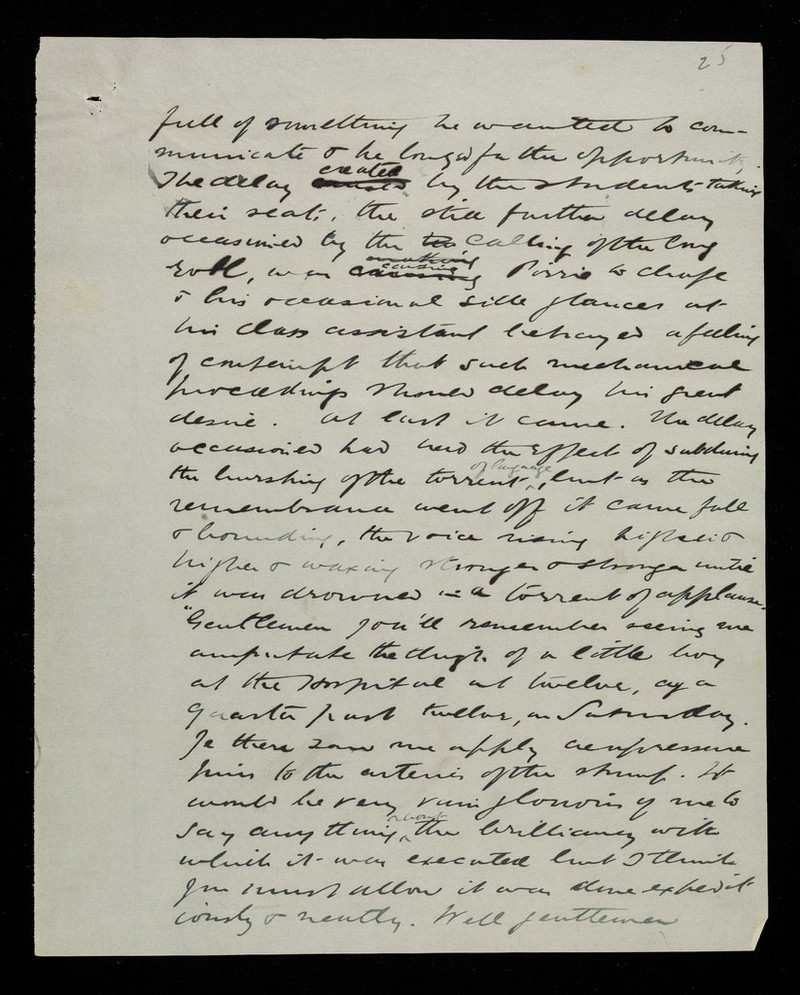 25
full of something he wanted to com-
municate & he longed for the opportunity.
created
The delay by the students taking
their seats, the still further delay
occasioned by the calling of the long
making
causing
Roll, was Pirrie to chafe
& his occasional side glances at
his class assistant betrayed a feeling
of contempt that such mechanical
proceedings should delay his great
desire. At last it came. The delay
occasioned had had the effect of subduing
of language
the bursting of the torrent, but as the
remembrance went off it came full
& bounding, the voice rising higher &
higher & waxing stronger & stronger until
it was drowned in a torrent of applause.
"Gentlemen you'll remember seeing me
amputate the thigh of a little boy
at the Hospital at twelve, ay a
quarter past twelve, on Saturday.
Ye there saw me apply acupressure
pins to the arteries of the stump. It
would be very vain glorious of me to
about
say anything the brilliancy with
which it was executed but I think
you must allow it was done expedit
iously & neatly. Well gentlemen